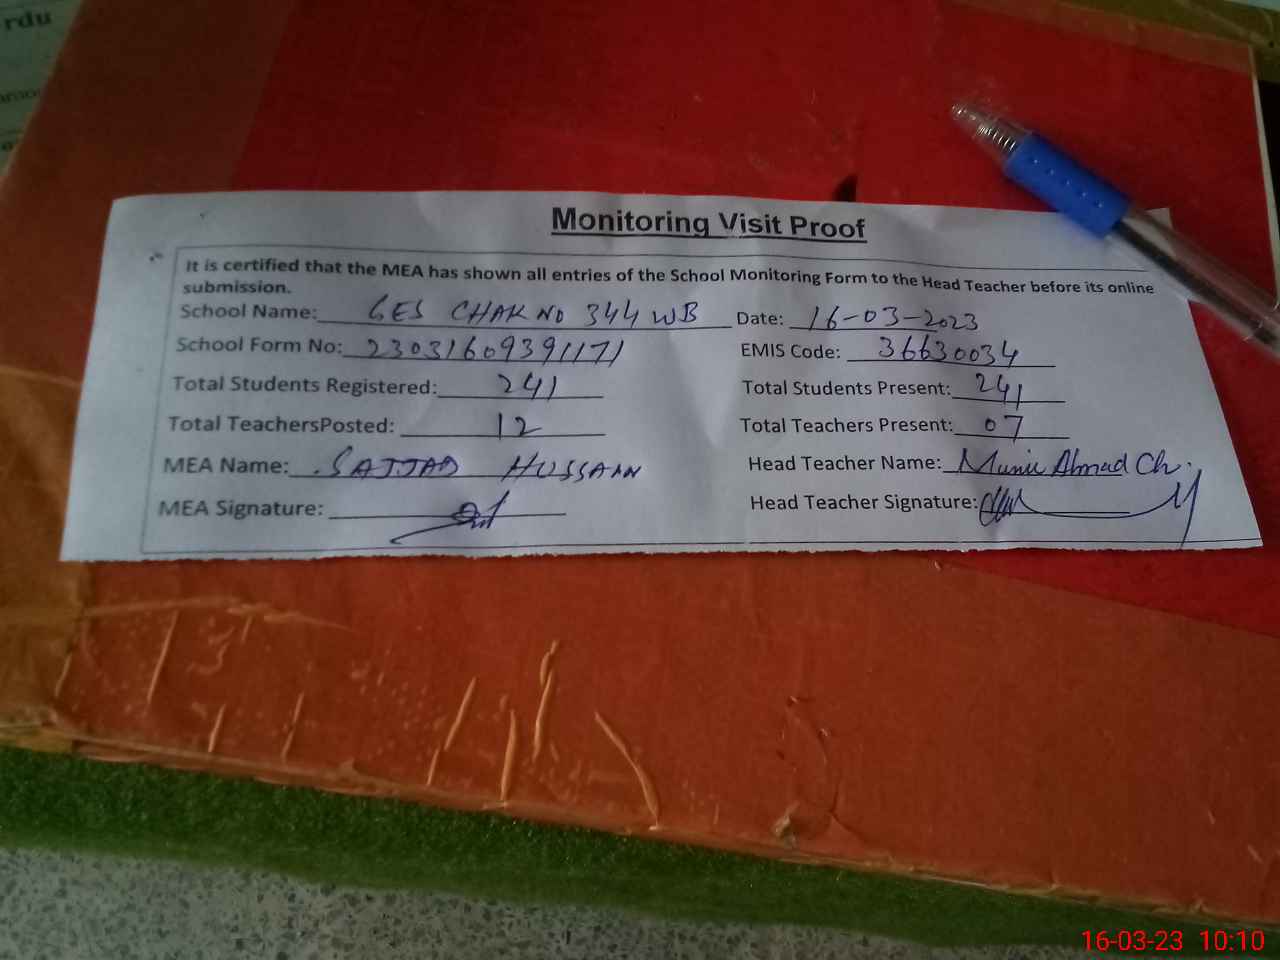 rdu
Monitoring Visit Proof
It is certified that the MEA has shown all entries of the School Monitoring Form to the Head Teacher before its online
submission.
School Name: GES CHAK NO 344 WB Date: 16-03-2023
School Form No: 23031609391171 EMIS Code: 36630034
Total Students Registered: 241 Total Students Present: 241
Total TeachersPosted: 12 Total Teachers Present: 07
MEA Name: SAJJAD HUSSAIN Head Teacher Name: Munir Ahmad Ch.
MEA Signature: Head Teacher Signature:
16-03-23 10:10